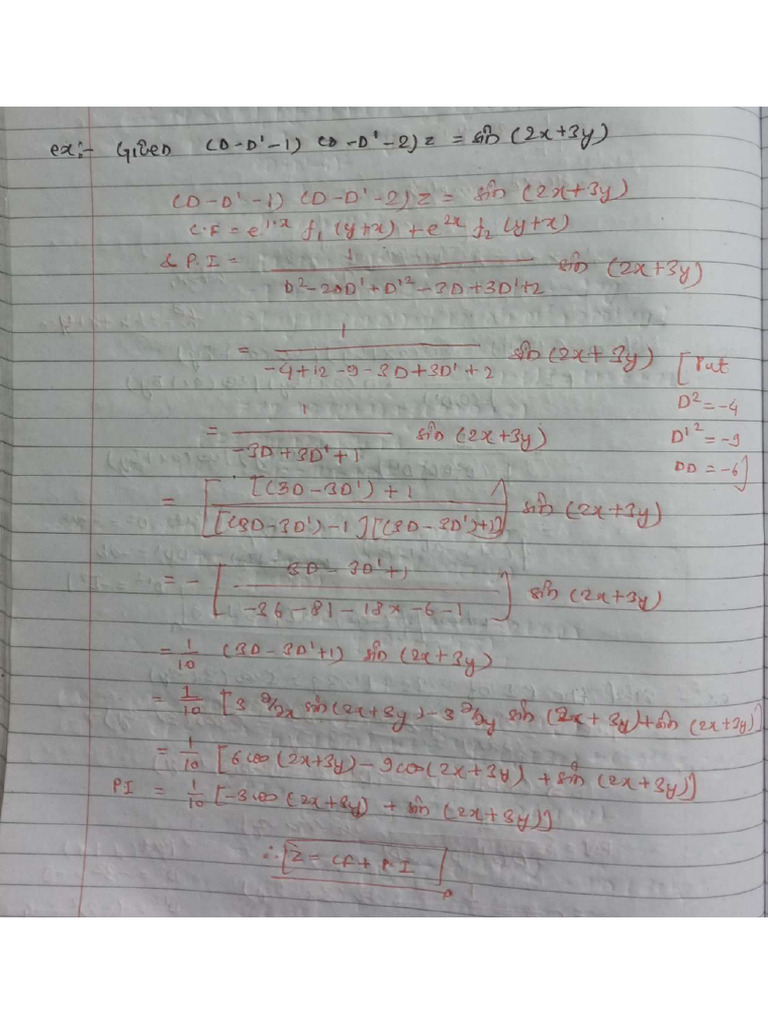 ex:- Given (D-D'-1) (D-D'-2)z = sin (2x+3y)
(D-D'-1) (D-D'-2)z = sin (2x+3y)
C.F = e^{1·x} f₁ (y+x) + e^{2x} f₂ (y+x)
& P.I = 1 / (D²-2DD'+D'²-3D+3D'+2) sin (2x+3y)
= 1 / (-4+12-9-3D+3D'+2) sin (2x+3y) [Put
D² = -4
= 1 / (-3D+3D'+1) sin (2x+3y) D'² = -9
DD = -6]
= [ [(3D-3D')+1] / [(3D-3D')-1][(3D-3D')+1] ] sin (2x+3y)
= - [ 3D-3D'+1 / -36-81-18x-6-1 ] sin (2x+3y)
= 1/10 (3D-3D'+1) sin (2x+3y)
= 1/10 [3 ∂/∂x sin(2x+3y) - 3 ∂/∂y sin (2x+3y) + sin (2x+3y)]
= 1/10 [6 cos (2x+3y) - 9 cos (2x+3y) + sin (2x+3y)]
PI = 1/10 [-3 cos (2x+3y) + sin (2x+3y)]
∴ [Z = CF + PI]